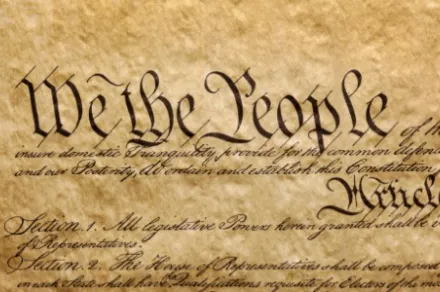 We the People of th
insure domestic Tranquility, provide for the common defence
and our Posterity, do ordain and establish this Constitution
Article
Section. 1. All legislative Powers herein granted shall be
of Representatives.
Section. 2. The House of Representatives shall be composed
in each State shall have the Qualifications requisite for Electors of the mo